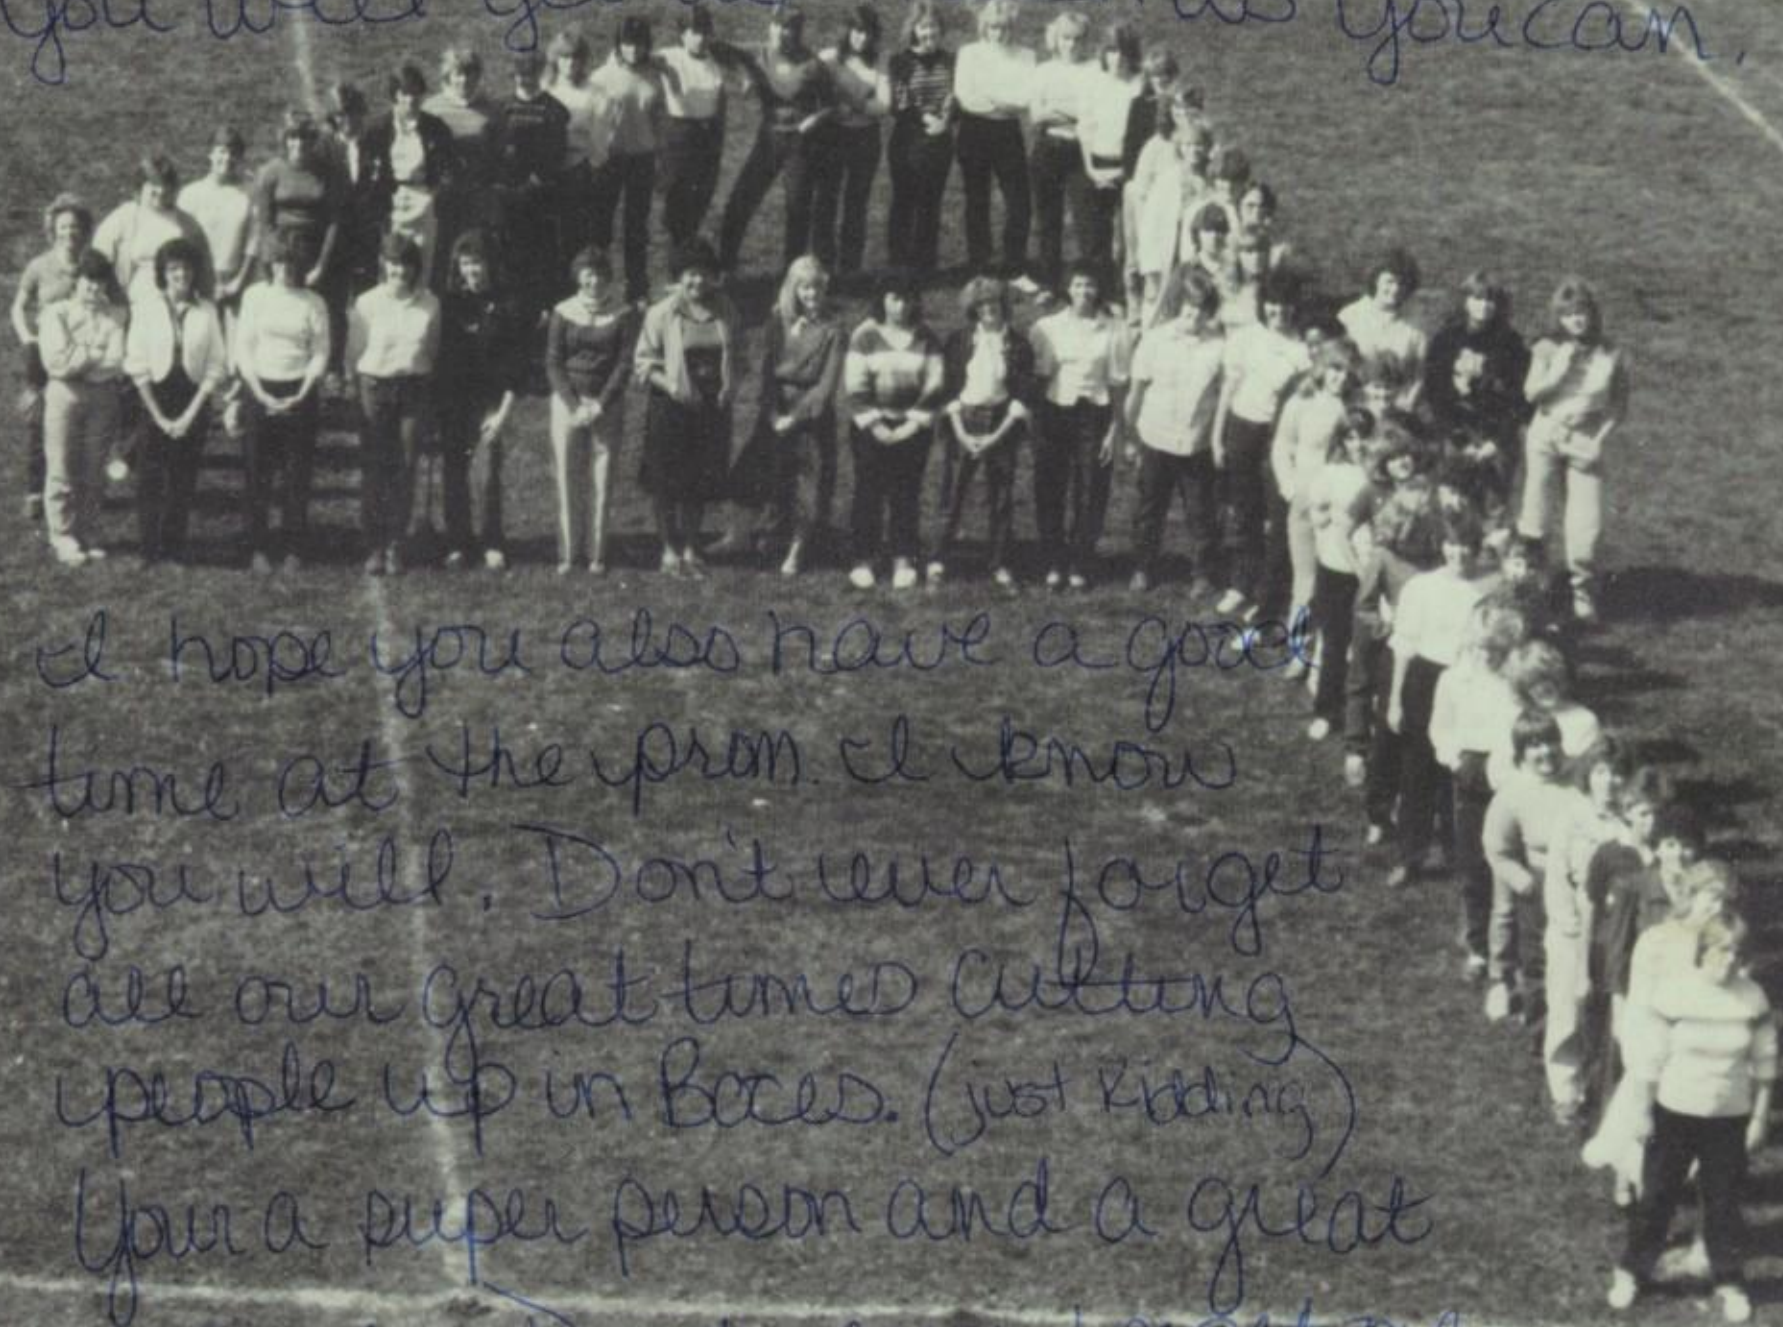 you will you can.
I hope you also have a good
time at the prom. I know
you will. Don't ever forget
all our great times cutting
people up in Boces. (just kidding)
Your a super person and a great